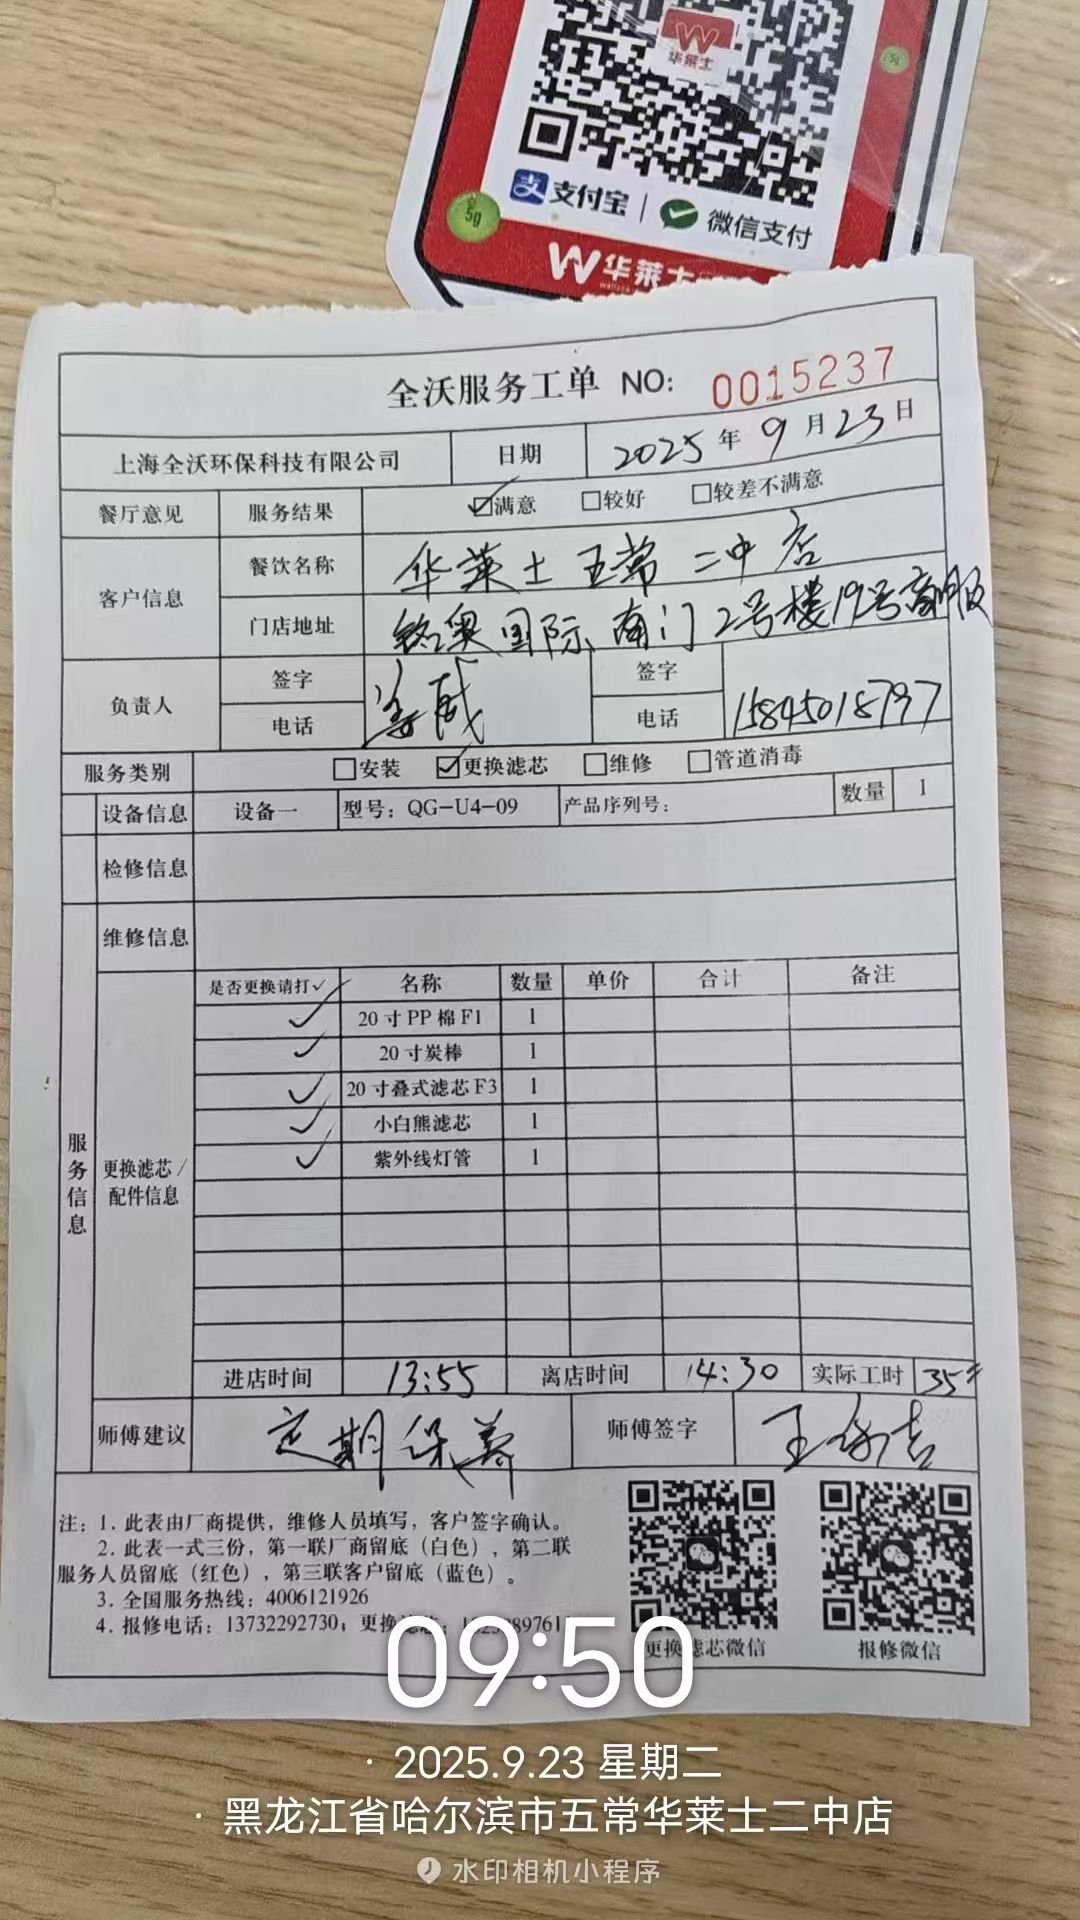 W
华莱士
支付宝 | 微信支付
5g
5g
W华莱士
全沃服务工单 NO: 0015237
上海全沃环保科技有限公司 日期 2025年9月23日
餐厅意见 服务结果 ☑满意 □较好 □较差不满意
客户信息 餐饮名称 华莱士五常二中店
门店地址 铭奥国际南门2号楼19号商服
负责人 签字 签字
电话 电话 15845018797
服务类别 □安装 ☑更换滤芯 □维修 □管道消毒
设备信息 设备一 型号：QG-U4-09 产品序列号： 数量 1
检修信息
维修信息
服务信息
更换滤芯/配件信息
是否更换请打✓ 名称 数量 单价 合计 备注
✓ 20寸PP棉F1 1
✓ 20寸炭棒 1
✓ 20寸叠式滤芯F3 1
✓ 小白熊滤芯 1
✓ 紫外线灯管 1
进店时间 13:55 离店时间 14:30 实际工时 35
师傅建议 定期保养 师傅签字
注：1. 此表由厂商提供，维修人员填写，客户签字确认。
2. 此表一式三份，第一联厂商留底（白色），第二联
服务人员留底（红色），第三联客户留底（蓝色）。
3. 全国服务热线：4006121926
4. 报修电话：13732292730；更换
更换滤芯微信 报修微信
09:50
· 2025.9.23 星期二
· 黑龙江省哈尔滨市五常华莱士二中店
水印相机小程序